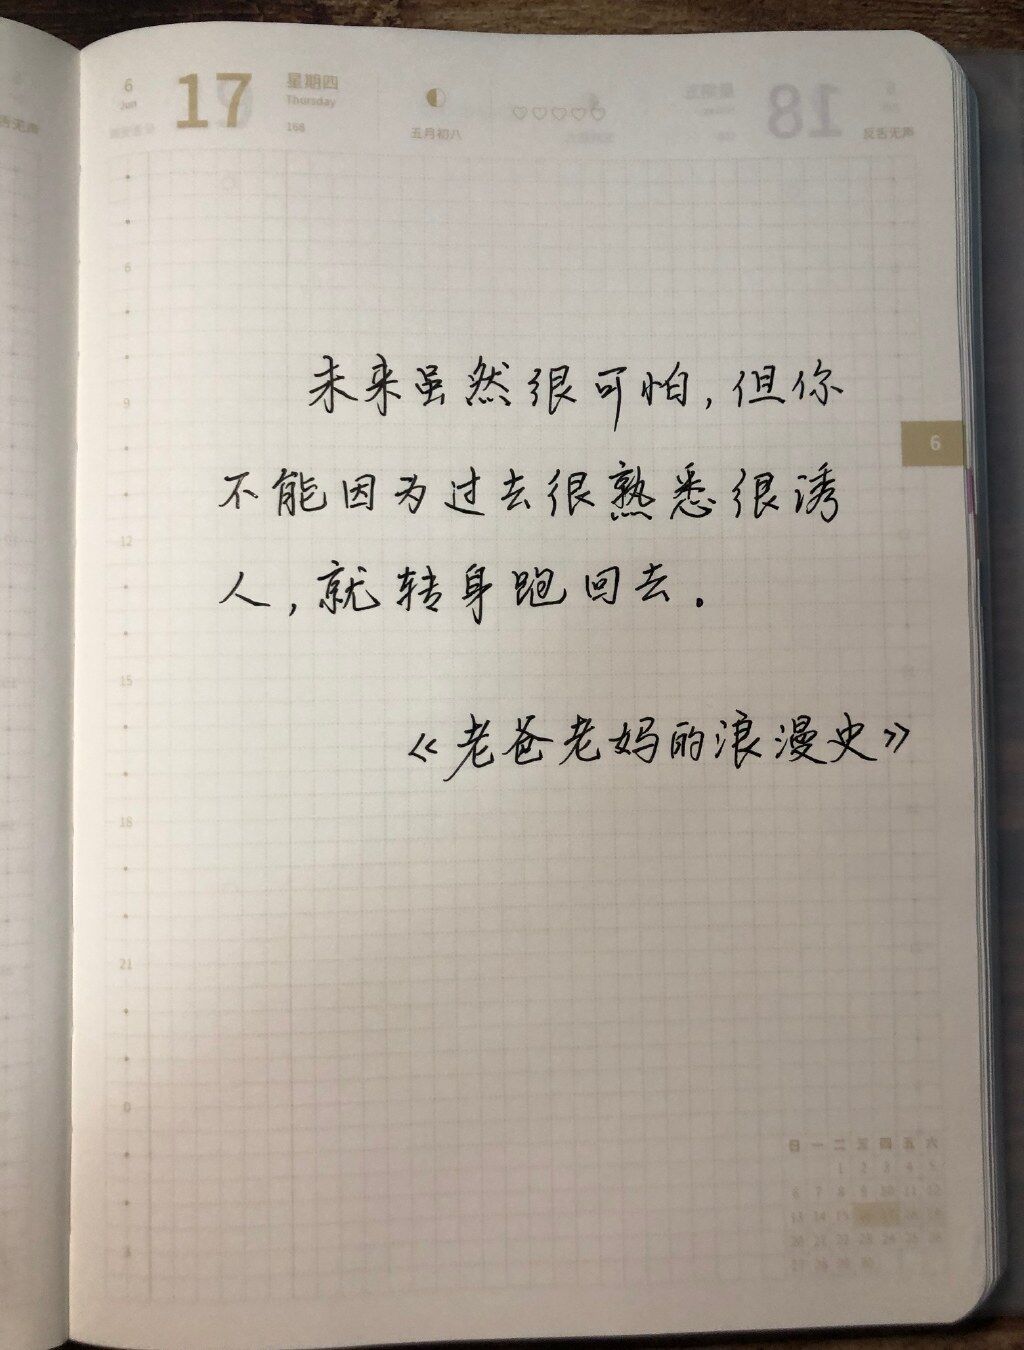 6
Jun
17
星期四
Thursday
168
五月初八
反舌无声
6
9
12
15
18
21
0
3
6
未来虽然很可怕,但你
不能因为过去很熟悉很诱
人,就转身跑回去.
《老爸老妈的浪漫史》
日 一 二 三 四 五 六
1 2 3 4 5
6 7 8 9 10 11 12
13 14 15 16 17 18 19
20 21 22 23 24 25 26
27 28 29 30